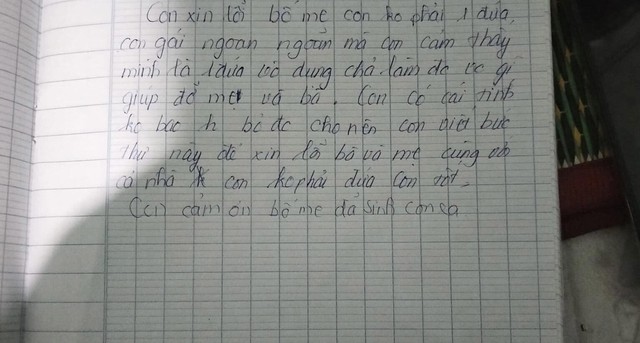 Con xin lỗi bố mẹ con ko phải 1 đứa
con gái ngoan ngoãn mà con cảm thấy
mình là 1 đứa vô dụng chả làm đc gì
giúp đỡ mẹ và bà. Con có cái tính
ko bao h bỏ đc cho nên con viết bức
thư này để xin lỗi bố và mẹ cùng với
cả nhà con ko phải đứa con tốt.
Con cảm ơn bố mẹ đã sinh con ra